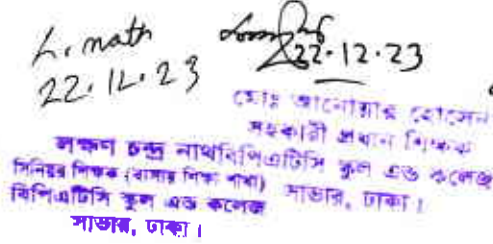 L. nath
22.12.23
22.12.23
মোঃ আনোয়ার হোসেন
সহকারী প্রধান শিক্ষক
বিপিএটিসি স্কুল এন্ড কলেজ
সাভার, ঢাকা।
লক্ষণ চন্দ্র নাথ
সিনিয়র শিক্ষক (ব্যবসায় শিক্ষা শাখা)
বিপিএটিসি স্কুল এন্ড কলেজ
সাভার, ঢাকা।